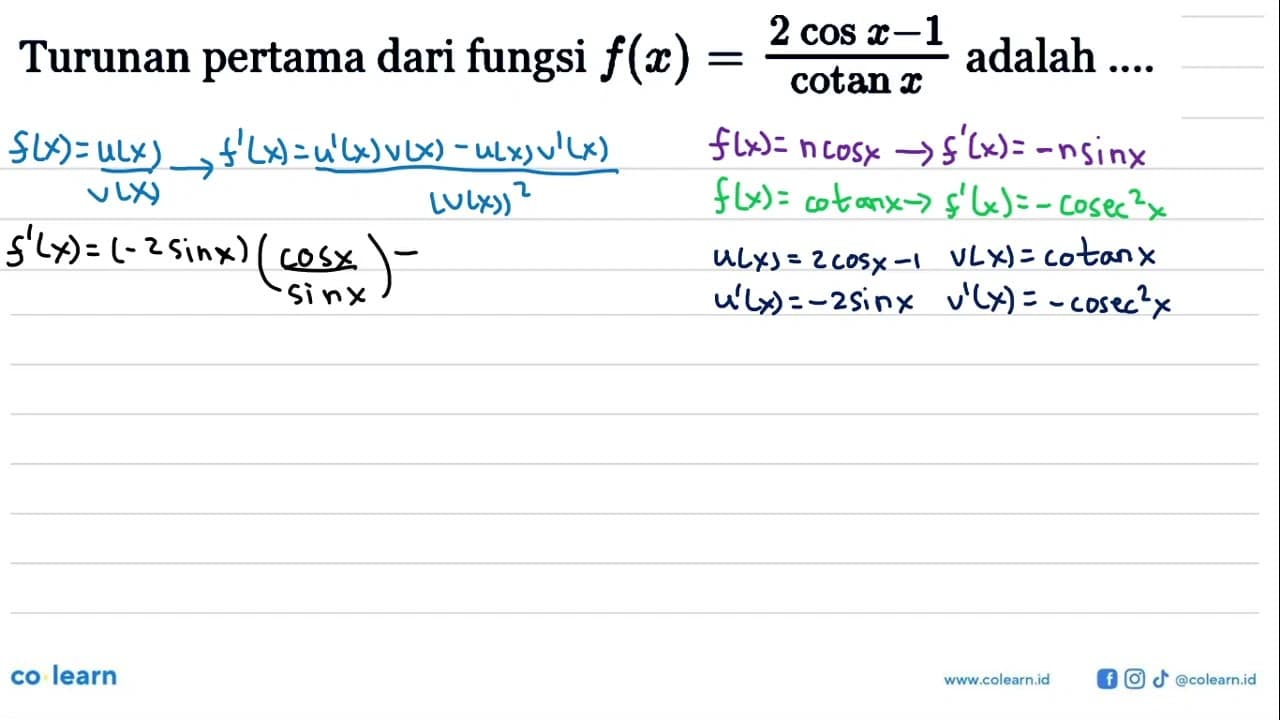 Turunan pertama dari fungsi f(x) = (2 cos x−1)/(cotan x) adalah ....
f(x) = u(x)/v(x) → f'(x) = (u'(x)v(x) - u(x)v'(x))/(v(x))²
f(x) = n cosx → f'(x) = -n sinx
f(x) = cotanx → f'(x) = - cosec²x
f'(x) = (-2 sinx) (cosx/sinx) -
u(x) = 2cosx -1 v(x) = cotanx
u'(x) = -2sinx v'(x) = -cosec²x
co learn
www.colearn.id
@colearn.id